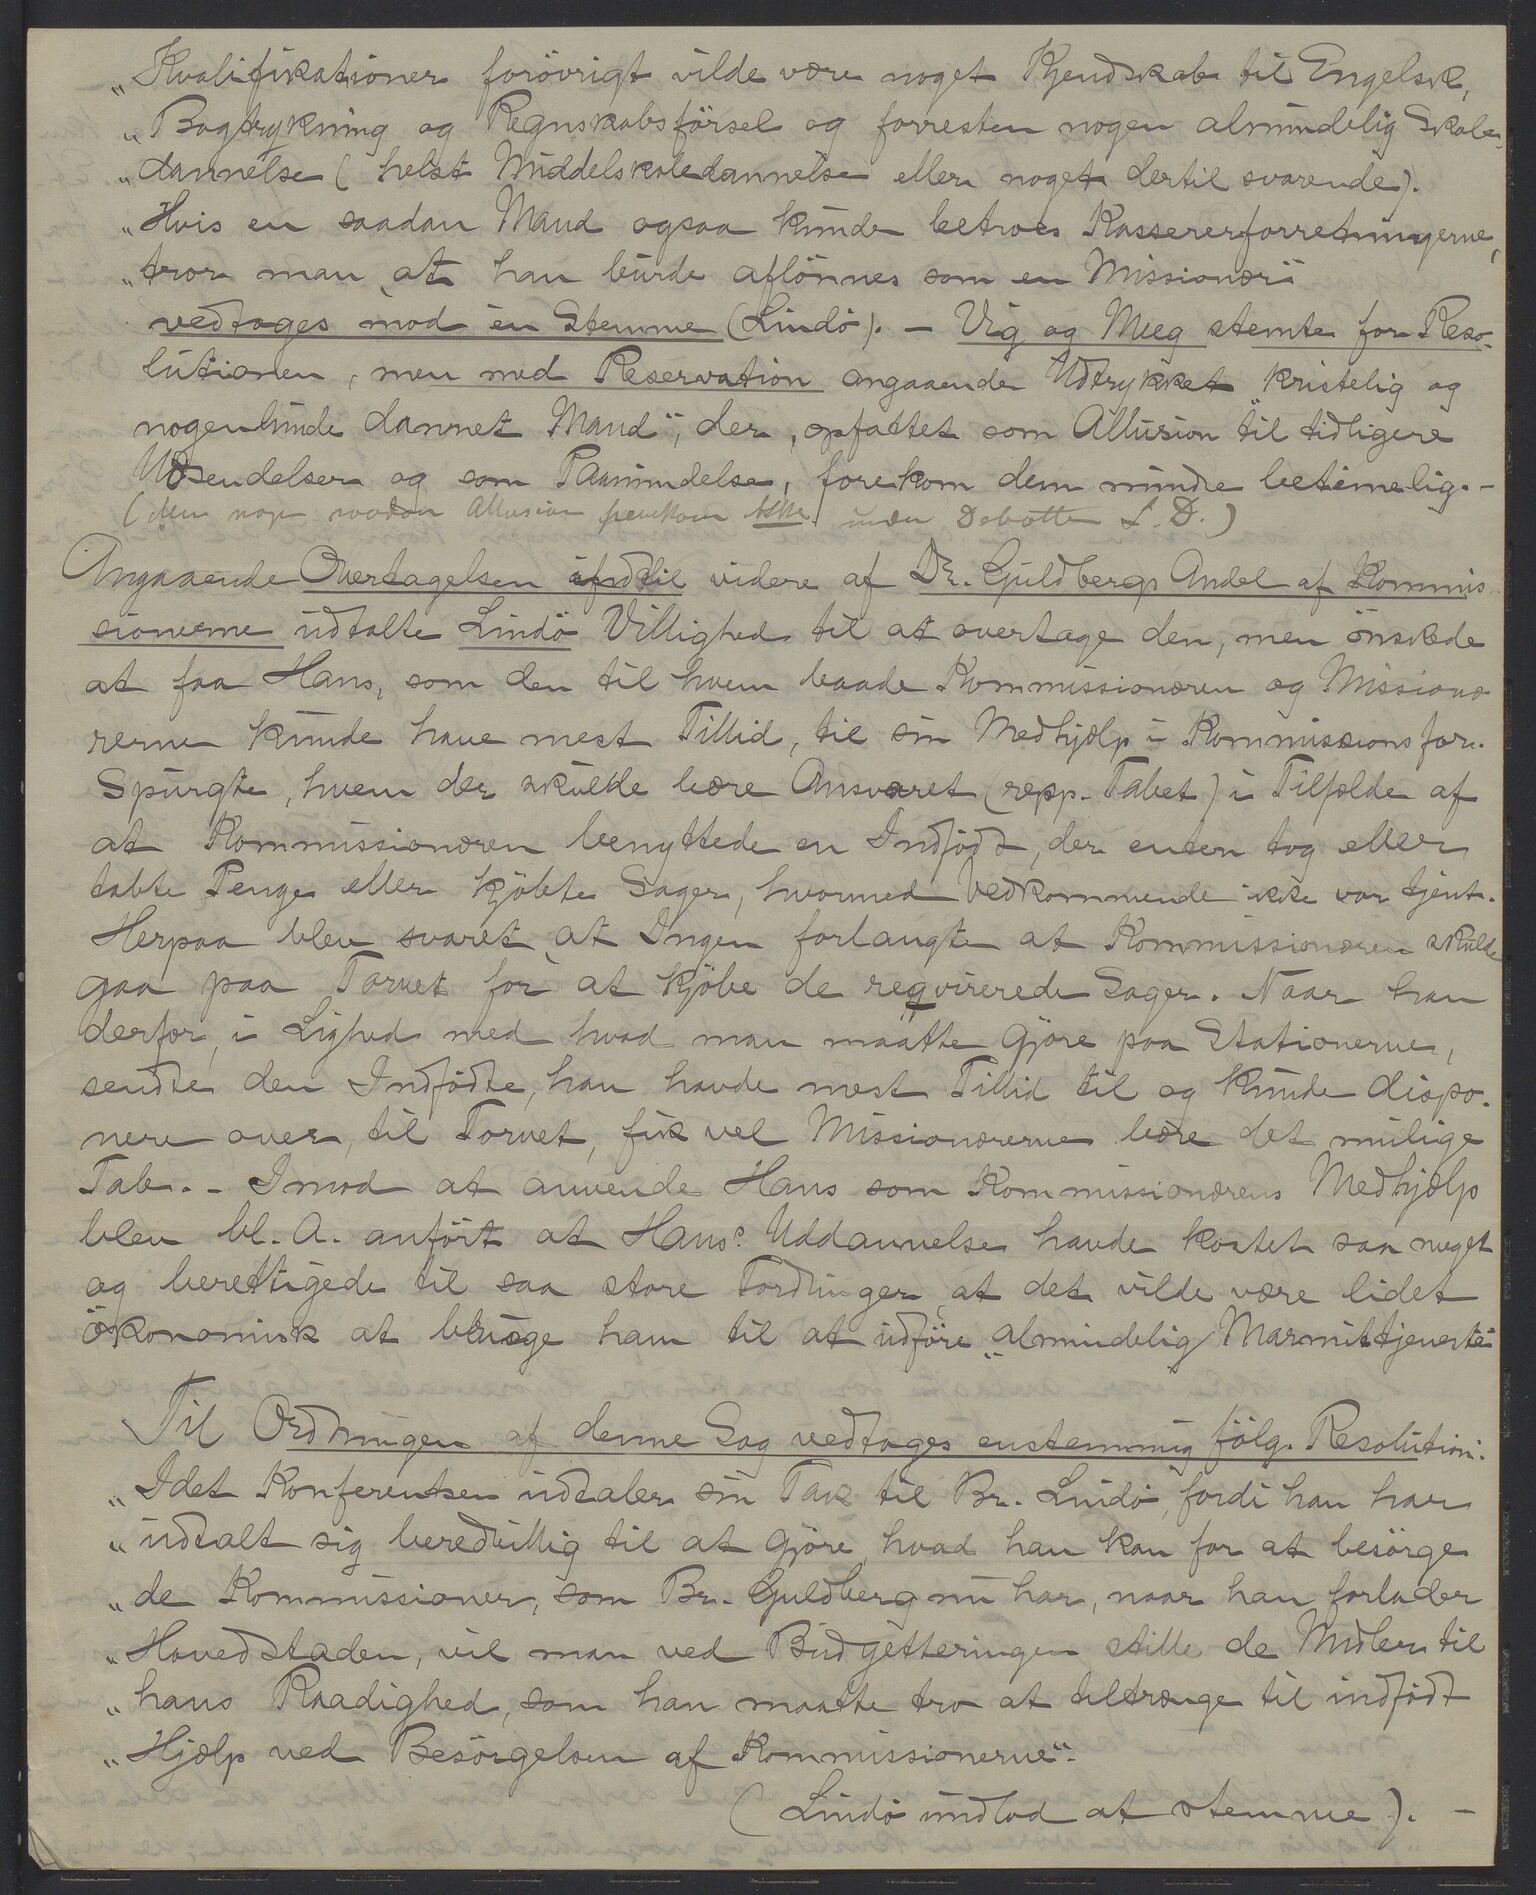 „Kvalifikationer forövrigt vilde være noget Kjendskab til Engelsk,
„Bogtrykning og Regnskabsförsel og forresten nogen almindelig Skole-
„dannelse (helst Middelskoledannelse eller noget dertil svarende).
„Hvis en saadan Mand ogsaa kunde betroes Kassererforretningerne,
„tror man, at han burde aflönnes som en Missionær“
vedtoges mod én Stemme (Lindö). – Vig og Meeg stemte for Reso-
lutionen, men med Reservation angaaende Udtrykket „kristelig og
nogenlunde dannet Mand“, der, opfattet som Allusion til tidligere
Udsendelser og som Paamindelse, forekom dem mindre betimelig. –
(den saadan Allusion forekom ikke under Debatten L. D.)
Angaaende Overtagelsen indtil videre af Dr. Guldbergs Andel af Kommis-
sionerne udtalte Lindö Villighed til at overtage den, men önskede
at faa Hans, som den til hvem baade Kommissionæren og Missionæ-
rerne kunde have mest Tillid, til sin Medhjælp i Kommissionsforr.
Spurgte, hvem der skulde bære Ansvaret (resp. Tabet) i Tilfælde af
at Kommissionæren benyttede en Indfödt, der enten tog eller
tabte Penge eller kjöbte Sager, hvormed Vedkommende ikke var tjent.
Herpaa blev svaret, at Ingen forlangte at Kommissionæren skulde
gaa paa Torvet for at kjöbe de reqvirerede Sager. Naar han
derfor, i Lighed med hvad man maatte gjöre paa Stationerne,
sendte den Indfödte, han havde mest Tillid til og kunde dispo-
nere over, til Torvet, fik vel Missionærerne bære det mulige
Tab. – Imod at anvende Hans som Kommissionærens Medhjælp
blev bl. A. anfört at Hans's Uddannelse havde kostet saa meget
og berettigede til saa store Fordringer, at det vilde være lidet
ökonomisk at bruge ham til at udföre „almindelig Marmittjeneste“
Til Ordningen af denne Sag vedtoges enstemmig fölg. Resolution:
„Idet Konferentsen udtaler sin Tak til Br. Lindö, fordi han har
„udtalt sig beredvillig til at gjöre, hvad han kan for at besörge
„de Kommissioner, som Br. Guldberg nu har, naar han forlader
„Hovedstaden, vil man ved Budgetteringen stille de Midler til
„hans Raadighed, som han maatte tro at tiltrænge til indfödt
„Hjælp ved Besörgelsen af Kommissionerne“.
(Lindö undlod at stemme). –